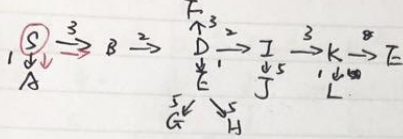 F
3
S 3 B 2 D 2 I 3 K 8 E
1 1 5 1
A E J L
5 5
G H